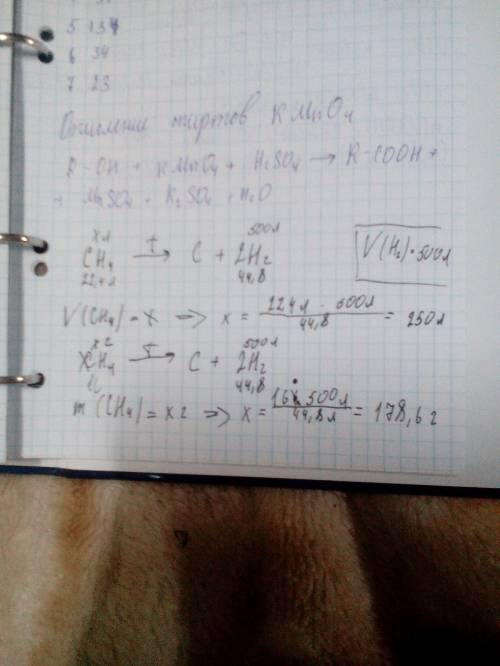 5 134
6 34
7 23
Окисление спиртов KMnO4
R-OH + KMnO4 + H2SO4 → R-COOH +
+ MnSO4 + K2SO4 + H2O
x л 500л
CH4 →t C + 2H2
22,4л 44,8
V(H2) = 500л
V(CH4) = x => x = 22,4л · 500л / 44,8 = 250л
x г 500л
CH4 →t C + 2H2
16 44,8
m (CH4) = x г => x = 16г · 500л / 44,8л = 178,6 г